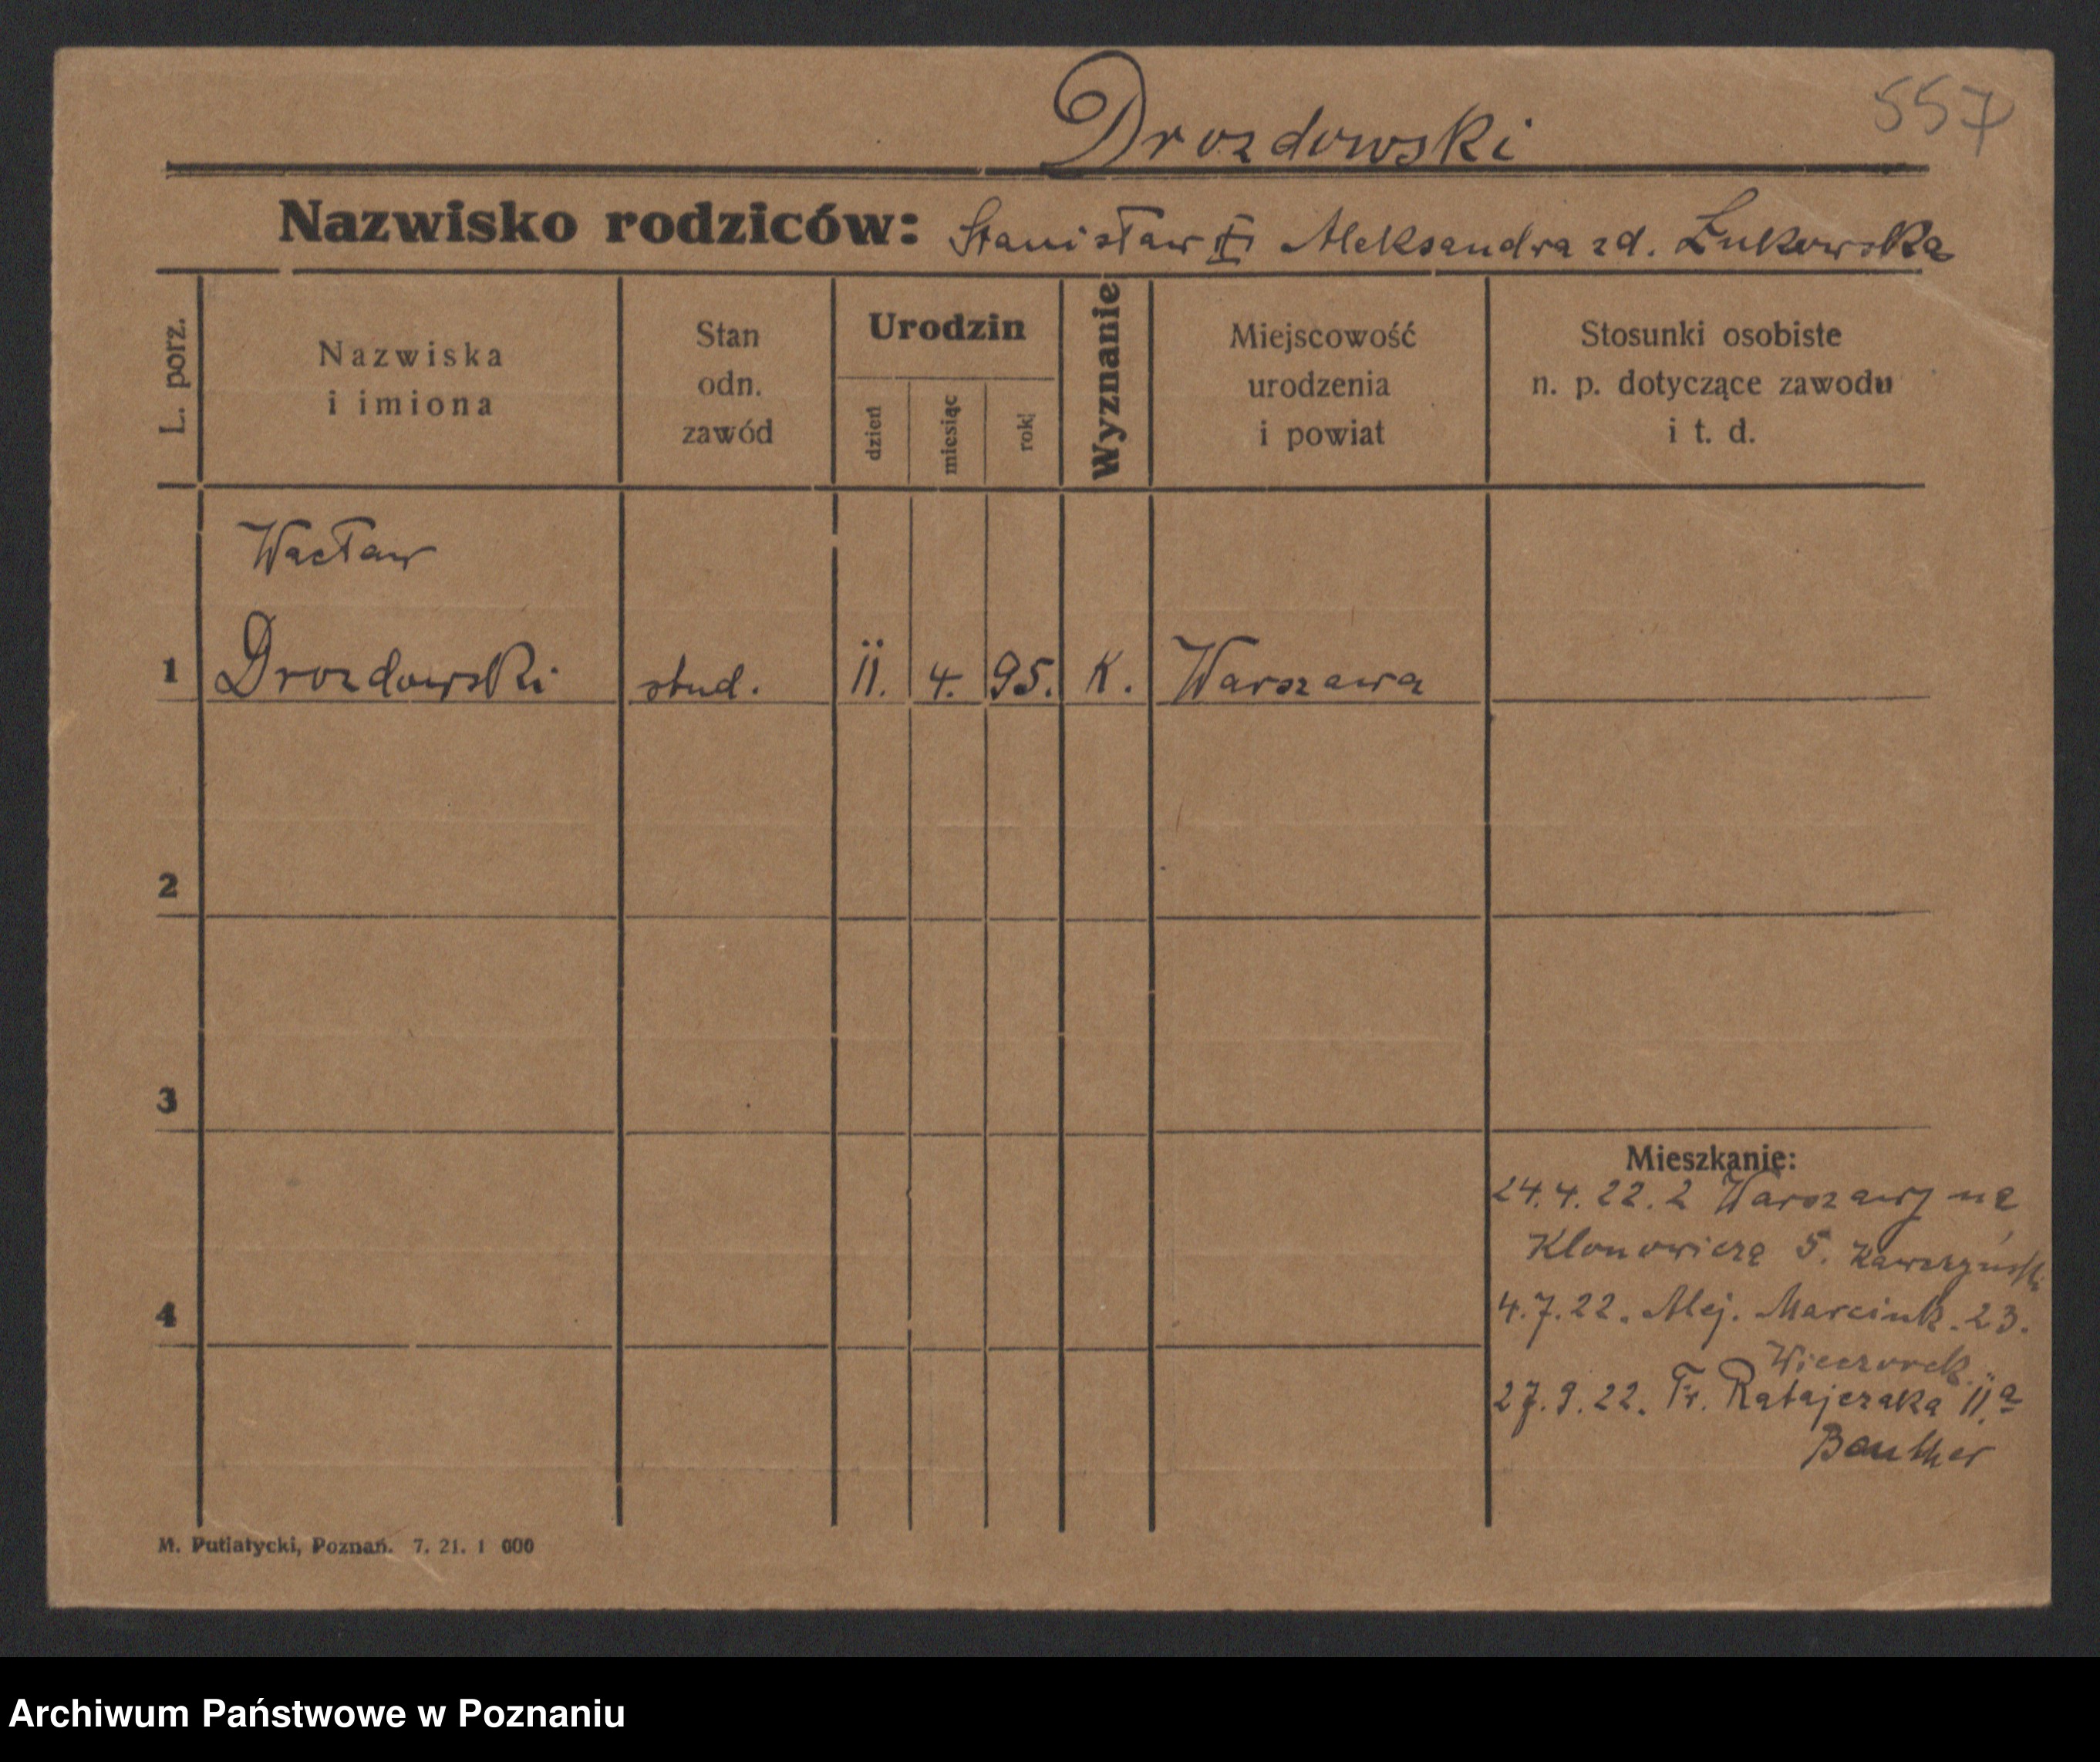 557
Drozdowski
Nazwisko rodziców: Stanisław Aleksandra zd. Łukowska
L. porz.
Nazwiska
i imiona
Stan
odn.
zawód
Urodzin
dzień
miesiąc
rok
Wyznanie
Miejscowość
urodzenia
i powiat
Stosunki osobiste
n. p. dotyczące zawodu
i t. d.
Wacław
1 Drozdowski stud. 11. 4. 95. K. Warszawa
2
3
4
Mieszkanie:
24.4.22. z Warszawy na
Klonowicza 5. Kawczyński
4.7.22. Alej. Marcink. 23.
Wieczorek
27.9.22. Fr. Ratajczaka 11.a
M. Putiatycki, Poznań. 7. 21. 1 000
Archiwum Państwowe w Poznaniu